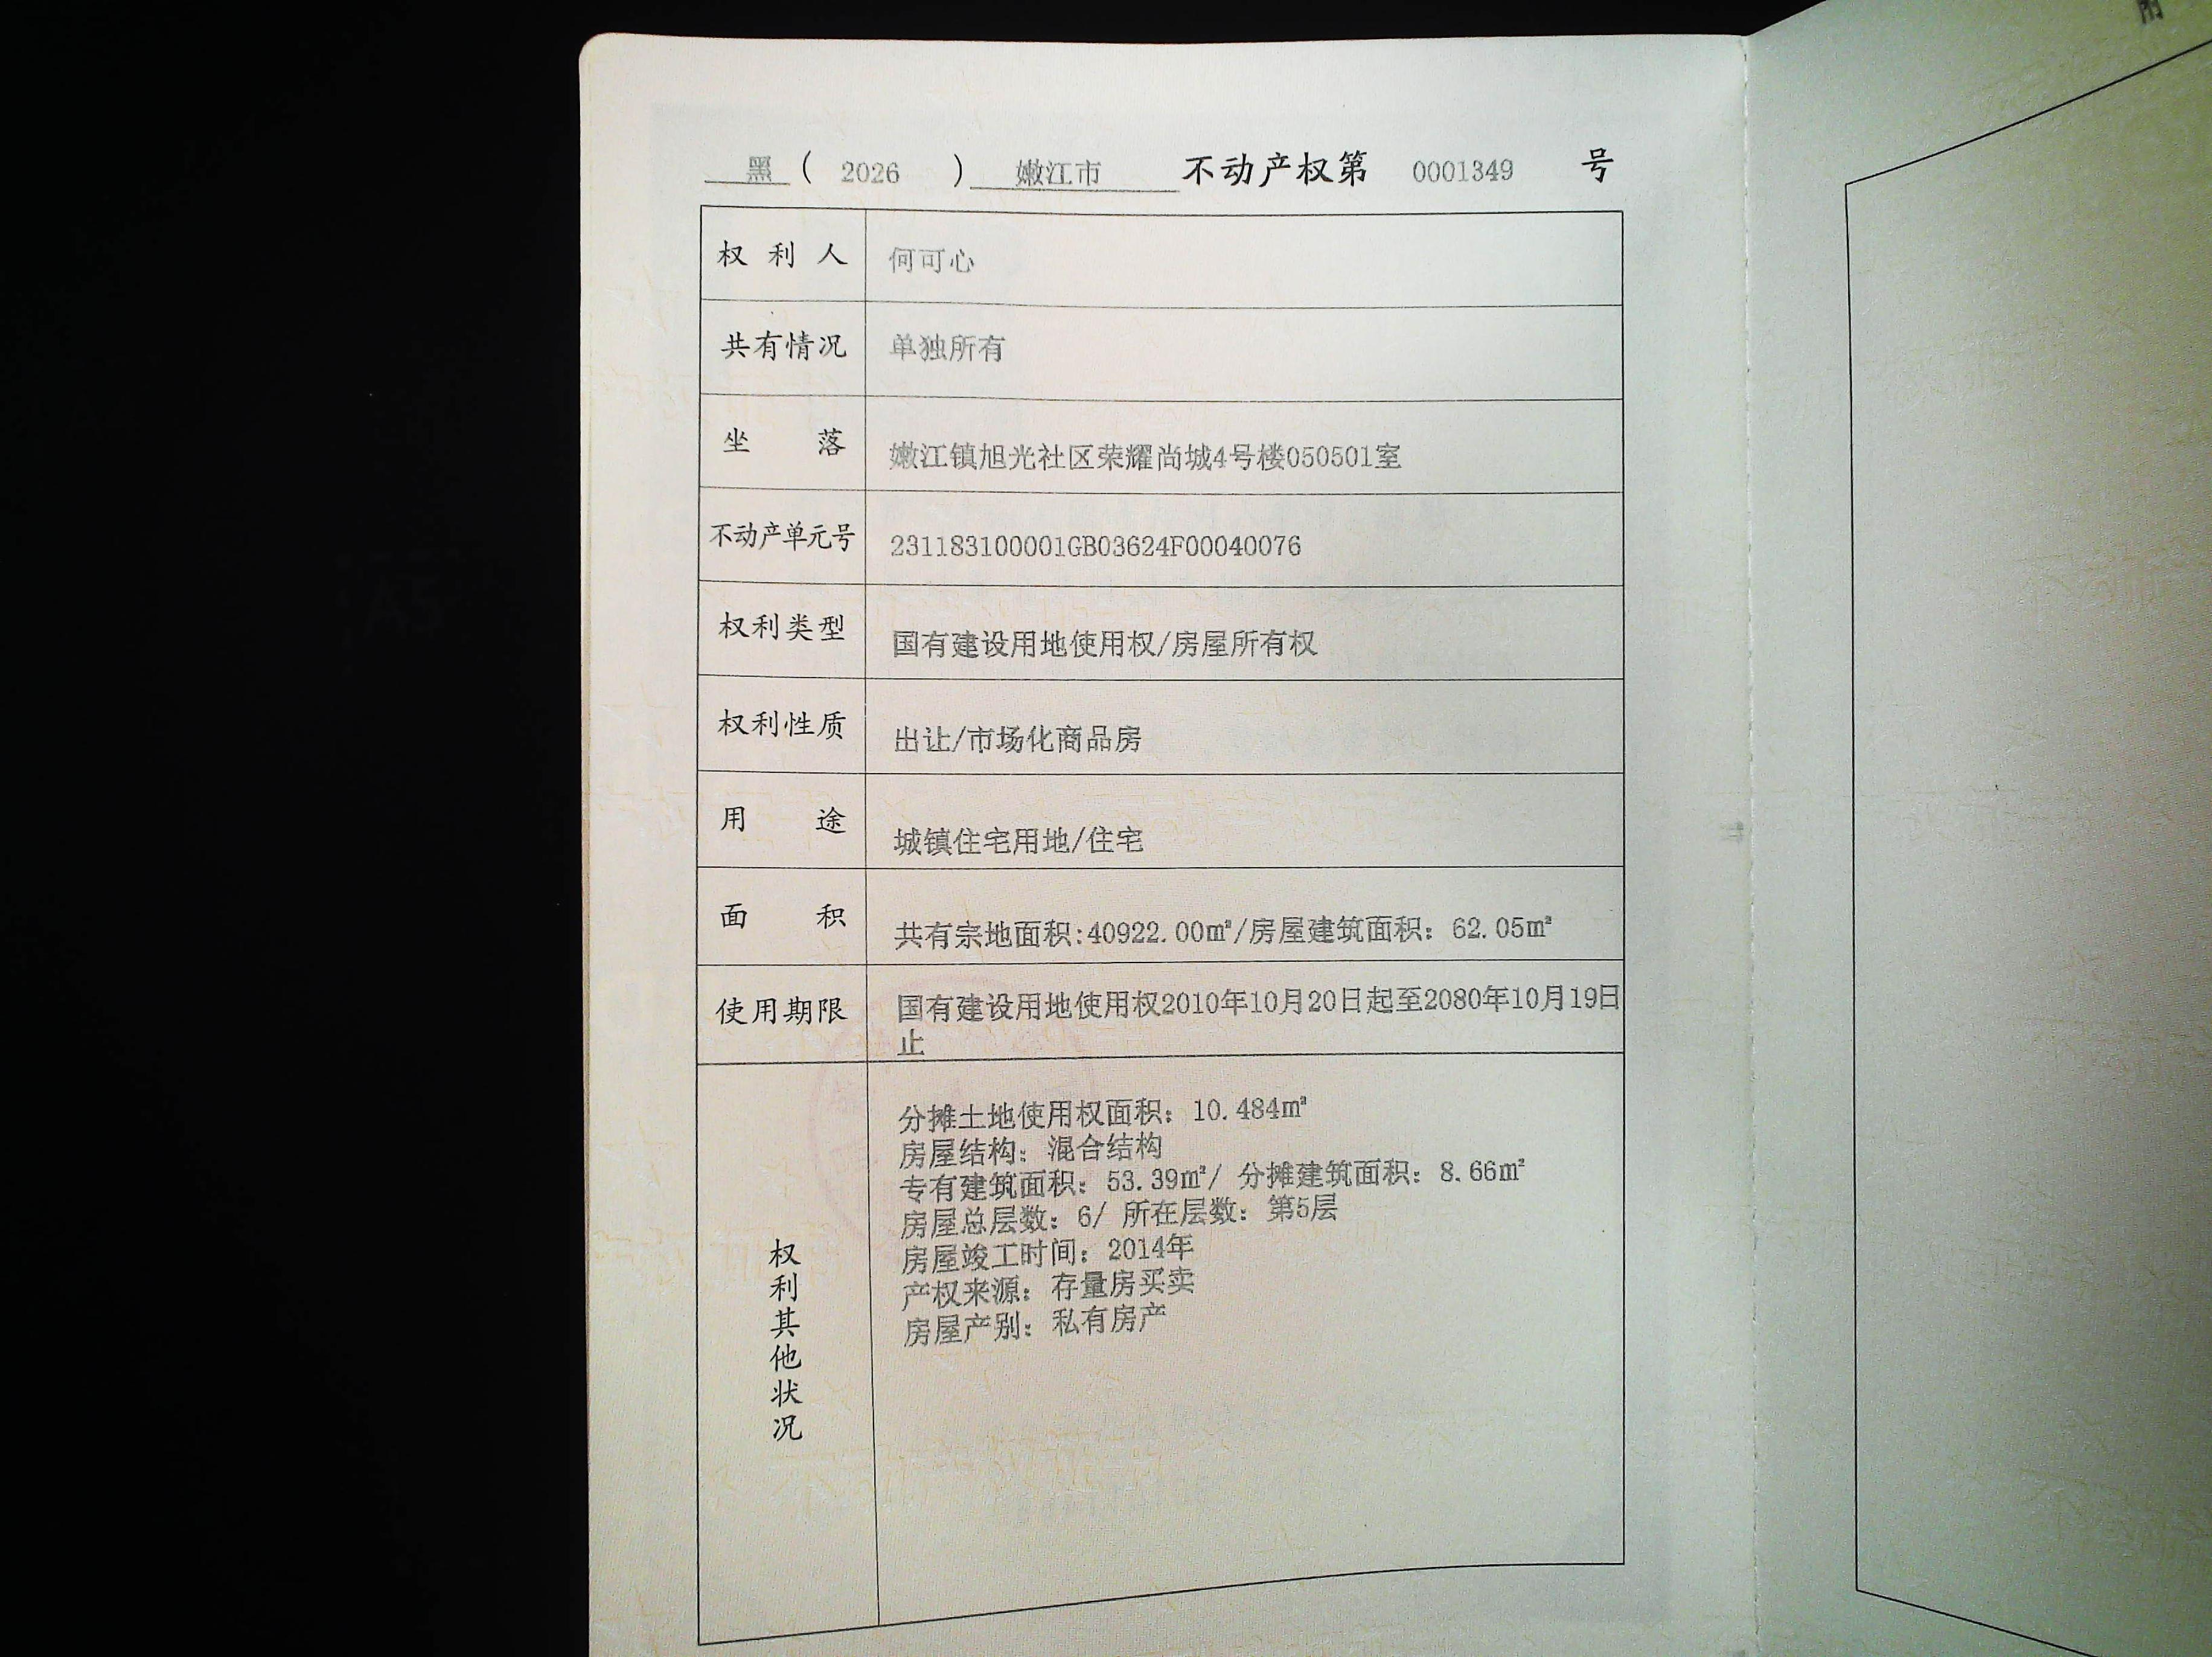 黑 ( 2026 ) 嫩江市 不动产权第 0001349 号
权利人 何可心
共有情况 单独所有
坐落 嫩江镇旭光社区荣耀尚城4号楼050501室
不动产单元号 231183100001GB03624F00040076
权利类型 国有建设用地使用权/房屋所有权
权利性质 出让/市场化商品房
用途 城镇住宅用地/住宅
面积 共有宗地面积:40922.00㎡/房屋建筑面积：62.05㎡
使用期限 国有建设用地使用权2010年10月20日起至2080年10月19日
止
权利其他状况
分摊土地使用权面积：10.484㎡
房屋结构：混合结构
专有建筑面积：53.39㎡/ 分摊建筑面积：8.66㎡
房屋总层数：6/ 所在层数：第5层
房屋竣工时间：2014年
产权来源：存量房买卖
房屋产别：私有房产
附